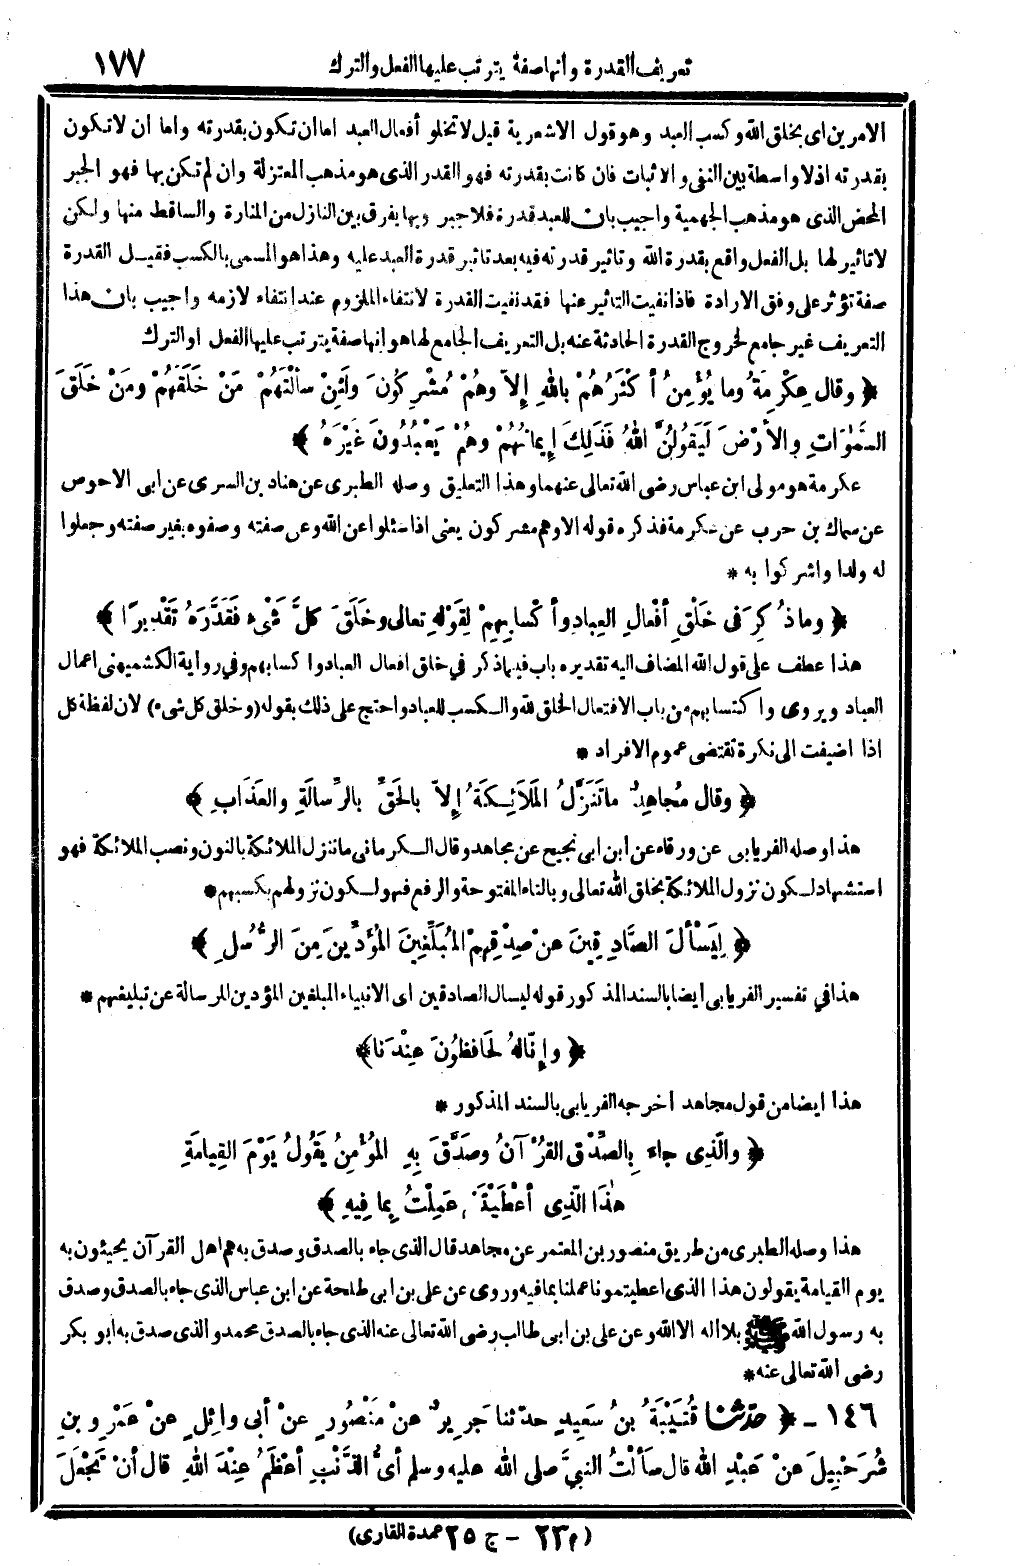 تعريف القدرة وانها صفة يترتب عليها الفعل والترك ١٧٧
الامرين اى بخلق الله وكسب العبد وهو قول الاشعرية قيل لا تخلو أفعال العبد اما ان تكون بقدرته واما ان لا تكون
بقدرته اذ لا واسطة بين النفى والاثبات فان كانت بقدرته فهو القدر الذى هو مذهب المعتزلة وان لم تكن بها فهو الجبر
المحض الذى هو مذهب الجهمية واجيب بان للعبد قدرة فلا جبر وبها يفرق بين النازل من المنارة والساقط منها ولكن
لا تاثير لها بل الفعل واقع بقدرة الله وتاثير قدرته فيه بعد تاثير قدرة العبد عليه وهذا هو المسمى بالكسب فقيل القدرة
صفة تؤثر على وفق الارادة فاذا نفيت التاثير عنها فقد نفيت القدرة لانتفاء الملزوم عند انتفاء لازمه واجيب بان هذا
التعريف غير جامع لخروج القدرة الحادثة عنه بل التعريف الجامع لها هو انها صفة يترتب عليها الفعل او الترك
﴿ وقال عِكْرِمَةُ وما يُؤْمِنُ أكْثَرُهُمْ بالله إلاّ وهُمْ مُشْرِكُونَ ولَئِنْ سألْتَهُمْ مَنْ خَلَقَهُمْ ومَنْ خَلَقَ
السَّمٰوَاتِ والأرْضَ لَيَقُولُنَّ اللهُ فَذَلِكَ إيمانُهُمْ وهُمْ يَعْبُدُونَ غَيْرَهُ ﴾
عكرمة هو مولى ابن عباس رضى الله تعالى عنهما وهذا التعليق وصله الطبرى عن هناد بن السرى عن ابى الاحوص
عن سماك بن حرب عن عكرمة فذكره قوله الا وهم مشركون يعنى اذا سئلوا عن الله وعن صفته وصفوه بغير صفته وجعلوا
له ولدا واشركوا به *
﴿ وما ذُكِرَ فى خَلْقِ أفْعالِ العِبادِ وأكْسابِهِمْ لِقَوْلِهِ تعالى وخَلَقَ كلَّ شَىْءٍ فَقَدَّرَهُ تَقْدِيرًا ﴾
هذا عطف على قول الله المضاف اليه تقديره باب فيما ذكر في خلق افعال العباد واكسابهم وفي رواية الكشميهنى اعمال
العباد ويروى واكتسابهم من باب الافتعال الخلق لله والكسب للعباد واحتج على ذلك بقوله (وخلق كل شىء) لان لفظة كل
اذا اضيفت الى نكرة تقتضى عموم الافراد *
﴿ وقال مُجاهِدٌ ما تَنَزَّلُ المَلاَئِكَةُ إلاّ بالحَقِّ بالرِّسالَةِ والعَذَابِ ﴾
هذا وصله الفريابى عن ورقاء عن ابن ابى نجيح عن مجاهد وقال الكرمانى ما ننزل الملائكة بالنون ونصب الملائكة فهو
استشهاد لكون نزول الملائكة بخلق الله تعالى وبالتاء المفتوحة والرفع فهو لكون نزولهم بكسبهم *
﴿ لِيَسْألَ الصَّادِقِينَ عنْ صِدْقِهِمْ المُبَلِّغِينَ المُؤَدِّينَ مِنَ الرُّسُلِ ﴾
هذا في تفسير الفريابى أيضا بالسند المذكور قوله ليسال الصادقين اى الانبياء المبلغين المؤدين الرسالة عن تبليغهم *
﴿ وإنّا لهُ لَحَافِظُونَ عِنْدَنا ﴾
هذا ايضا من قول مجاهد اخرجه الفريابى بالسند المذكور *
﴿ والَّذِى جاءَ بِالصِّدْقِ القُرْآنُ وصَدَّقَ بِهِ المُؤْمِنُ يَقُولُ يَوْمَ القِيامَةِ
هٰذَا الَّذِى أعْطَيْتَنِى عَمِلْتُ بِما فِيهِ ﴾
هذا وصله الطبرى من طريق منصور بن المعتمر عن مجاهد قال الذى جاء بالصدق وصدق به هم اهل القرآن يجيئون به
يوم القيامة يقولون هذا الذى اعطيتمونا عملنا بما فيه وروى عن على بن ابى طلحة عن ابن عباس الذى جاء بالصدق وصدق
به رسول الله ﷺ بلا اله الا الله وعن على بن ابى طالب رضى الله تعالى عنه الذى جاء بالصدق محمد والذى صدق به ابو بكر
رضى الله تعالى عنه *
١٤٦ - ﴿ حدّثنا قُتَيْبَةُ بنُ سَعِيدٍ حدّثنا جَرِيرٌ عنْ مَنْصُورٍ عنْ أبى وائِلٍ عنْ عَمْرِو بنِ
شُرَحْبِيلَ عنْ عَبْدِ الله قال سَألْتُ النبيَّ صلى الله عليه وسلم أىُّ الذَّنْبِ أعْظَمُ عِنْدَ اللهِ قال أنْ تَجْعَلَ
(م ٢٣ - ج ٢٥ عمدة القارى)